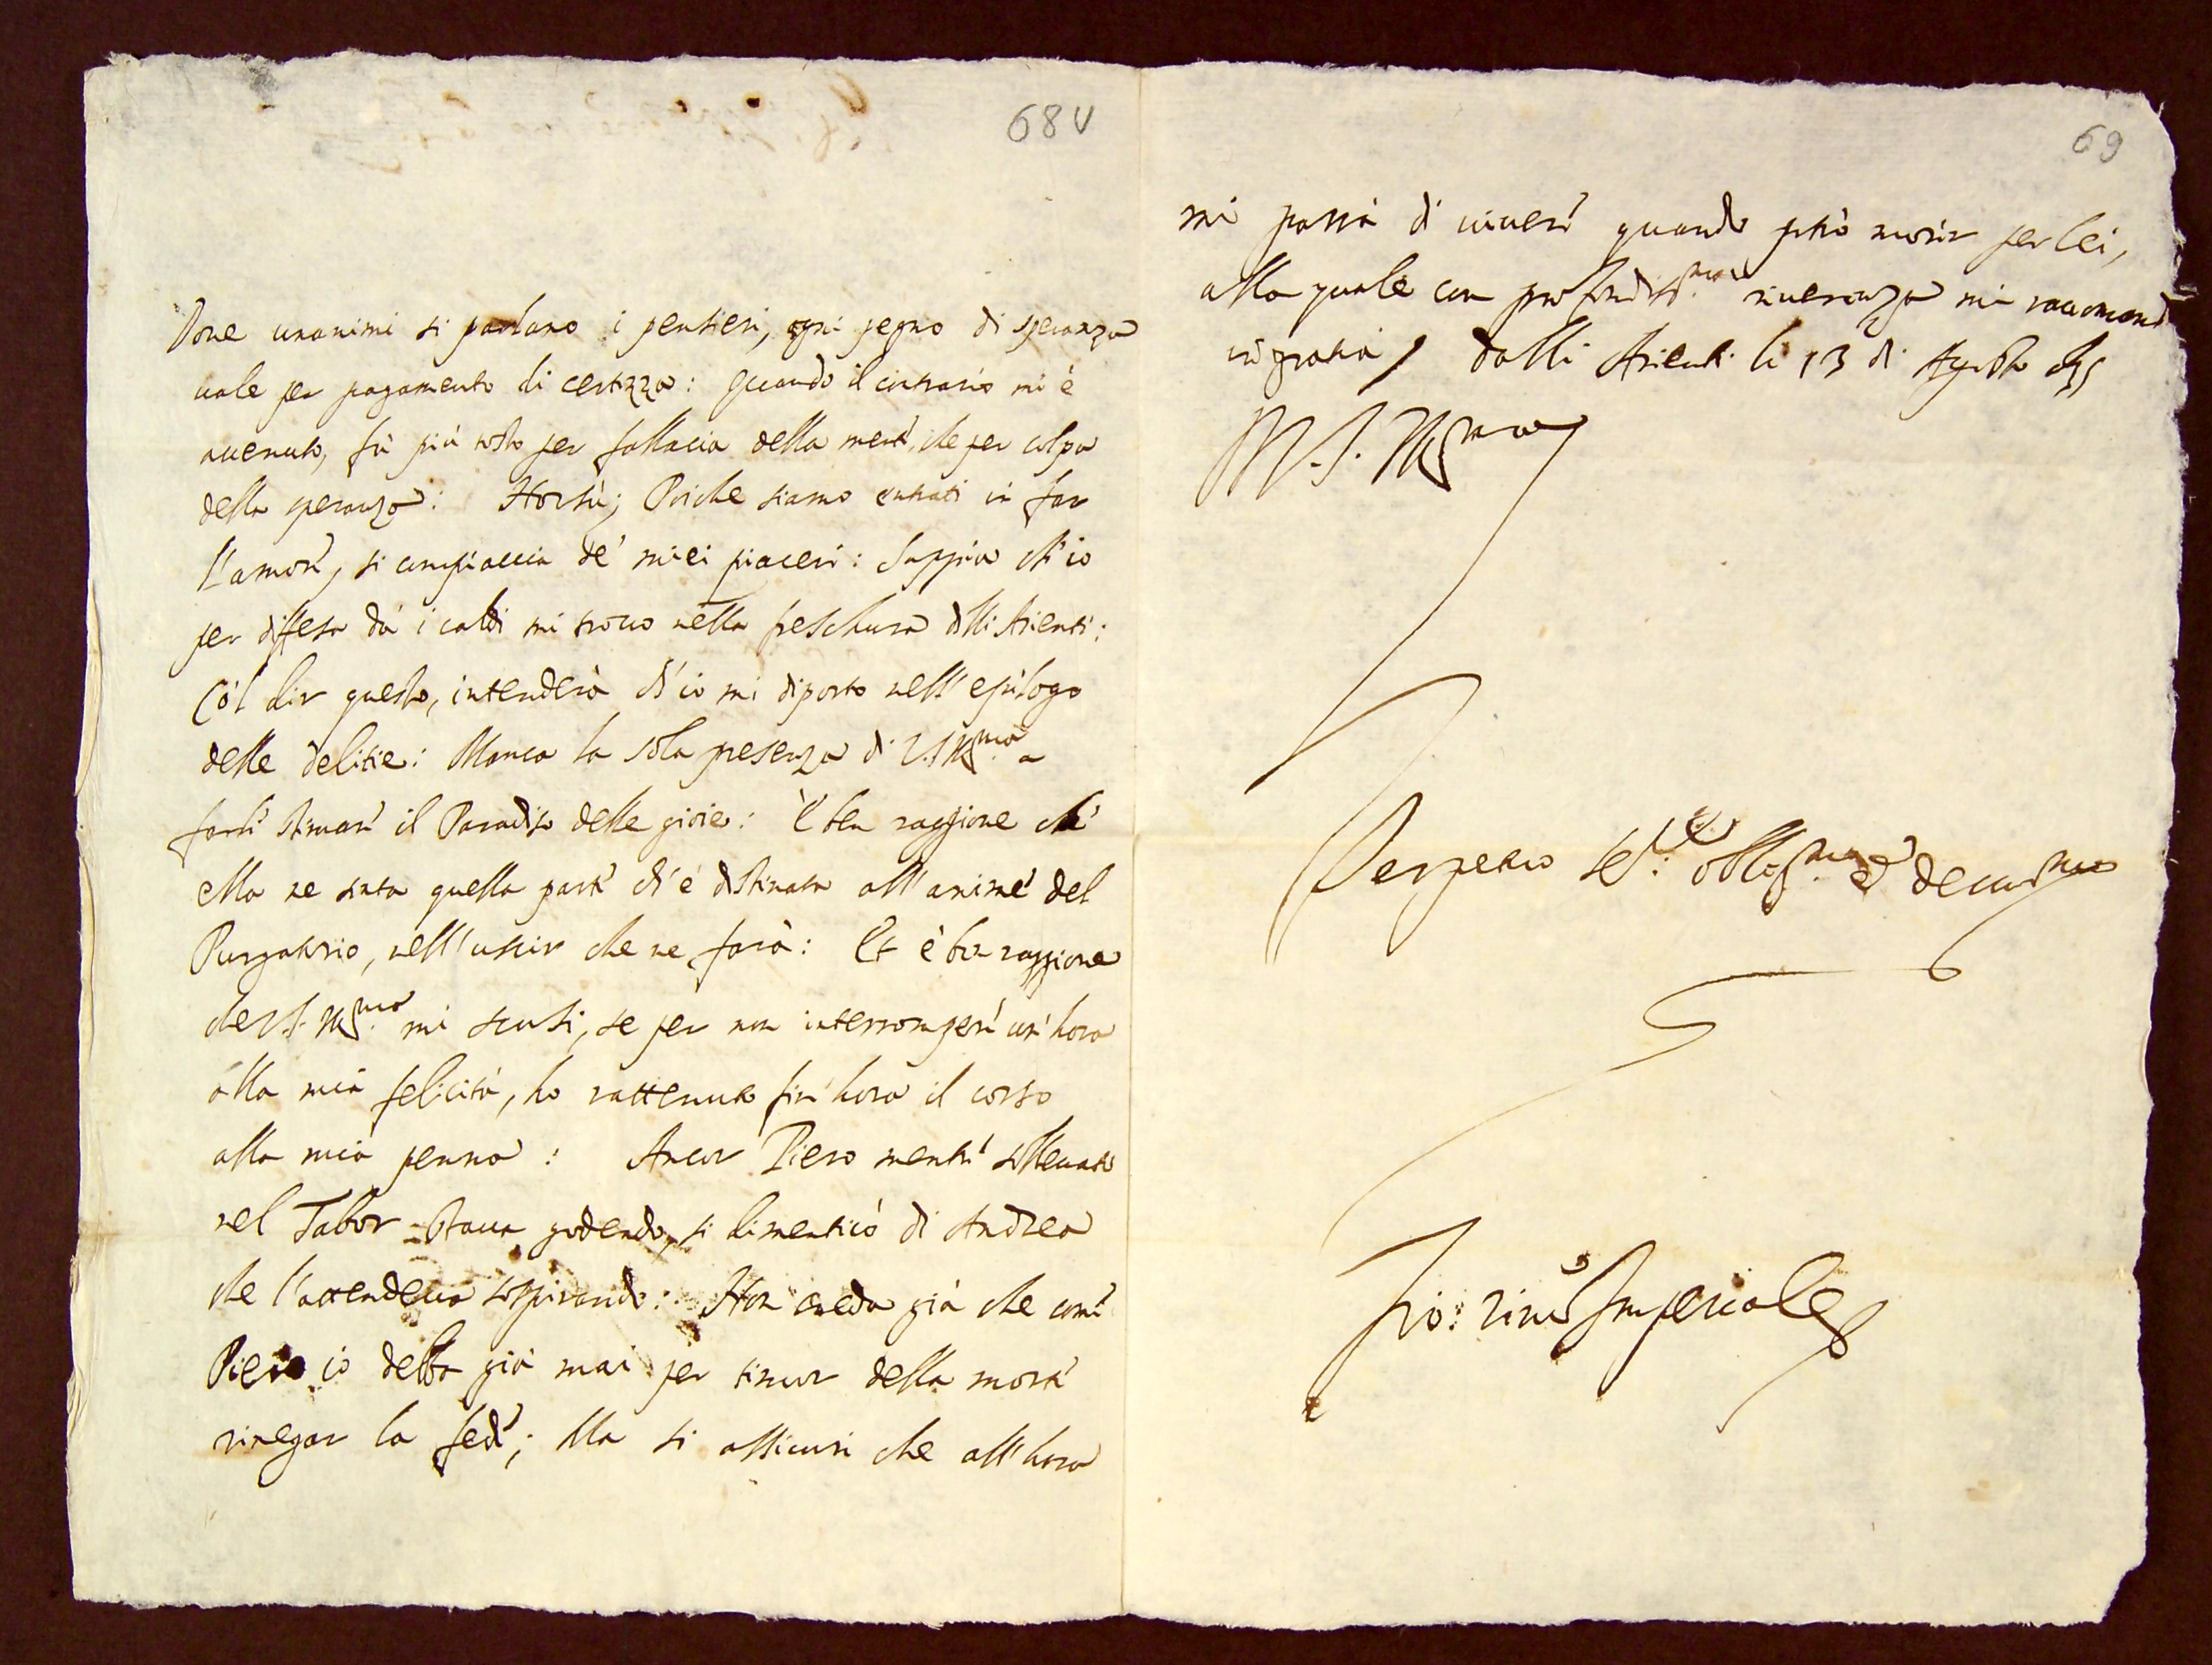 68v
Dove unanimi si parlano i pensieri, ogni pegno di speranza
vale per pagamento di certezza: Quando il contrario mi è
avenuto, fù più tosto per fallacia della mente, che per colpa
della speranza: Horsù; Poiche siamo entrati in far
l'amore, si compiaccia de' miei piaceri: Sappia ch'io
per diffesa da i caldi mi trovo nella freschura delli Arienti:
Co'l dir questo, intenderà ch'io mi diporto nell'epilogo
delle delitie: Manca la sola presenza di V.S. Ill.ma a
farle stimare il Paradiso delle gioie: È ben raggione che
ella ne senta quella parte ch'è destinata all'anime del
Purgatorio, nell'uscir che ne farà: Et è ben raggione
che V.S. Ill.ma mi scusi, se per non interrompere un'hora
alla mia felicità, ho rattenuto fin'hora il corso
alla mia penna: Ancor Piero mentre sollevato
nel Tabor stava godendo, si dimenticò di Andrea
che l'attendeva sospirando: Non creda già che come
Piero io debba già mai per timor della morte
rinegar la fede; Ma si assicuri che all'hora
69
mi parrà di vivere quando potrò morir per lei,
alla quale con profondiss.ma riverenza mi raccomando
in gratia / dalli Arienti li 13 di Agosto
V.S. Ill.ma
Perpetuo Se.re oblig.mo e devotiss.mo
Gio: Vinc.o Imperiale